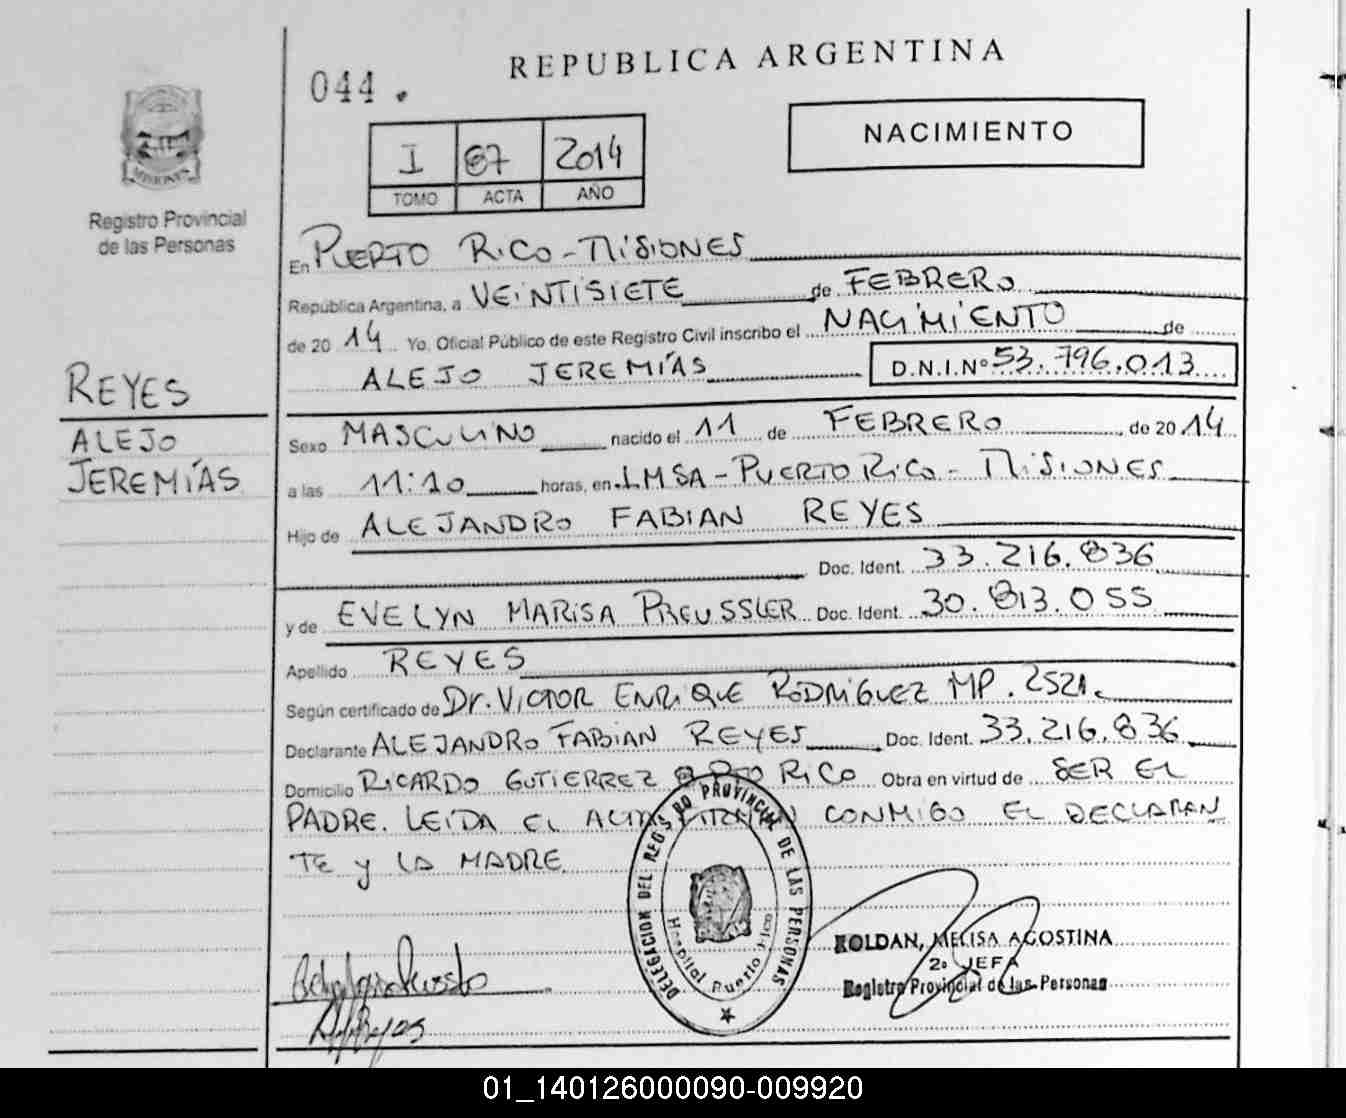 REPUBLICA ARGENTINA
044.
NACIMIENTO
I 87 2014
TOMO ACTA AÑO
MISIONES
Registro Provincial
de las Personas
En PUERTO RICO - MISIONES
República Argentina, a VEINTISIETE de FEBRERO
de 20 14 Yo, Oficial Público de este Registro Civil inscribo el NACIMIENTO de
ALEJO JEREMÍAS D.N.I.Nº 53.796.013
REYES
ALEJO
JEREMÍAS
Sexo MASCULINO nacido el 11 de FEBRERO de 20 14
a las 11:10 horas, en LMSA - PUERTO RICO - MISIONES
Hijo de ALEJANDRO FABIAN REYES
Doc. Ident. 33.216.836
y de EVELYN MARISA PREUSSLER Doc. Ident. 30.813.055
Apellido REYES
Según certificado de Dr. VICTOR ENRIQUE RODRÍGUEZ MP. 2521.
Declarante ALEJANDRO FABIAN REYES Doc. Ident. 33.216.836
Domicilio RICARDO GUTIERREZ PTO RICO Obra en virtud de SER EL
PADRE. LEIDA EL ACTA FIRMAN CONMIGO EL DECLARAN
TE y LA MADRE.
DELEGACION DEL REGISTRO PROVINCIAL DE LAS PERSONAS
Hospital Puerto Rico
ROLDAN, MELISA AGOSTINA
2º JEFA
Registro Provincial de las Personas
01_140126000090-009920